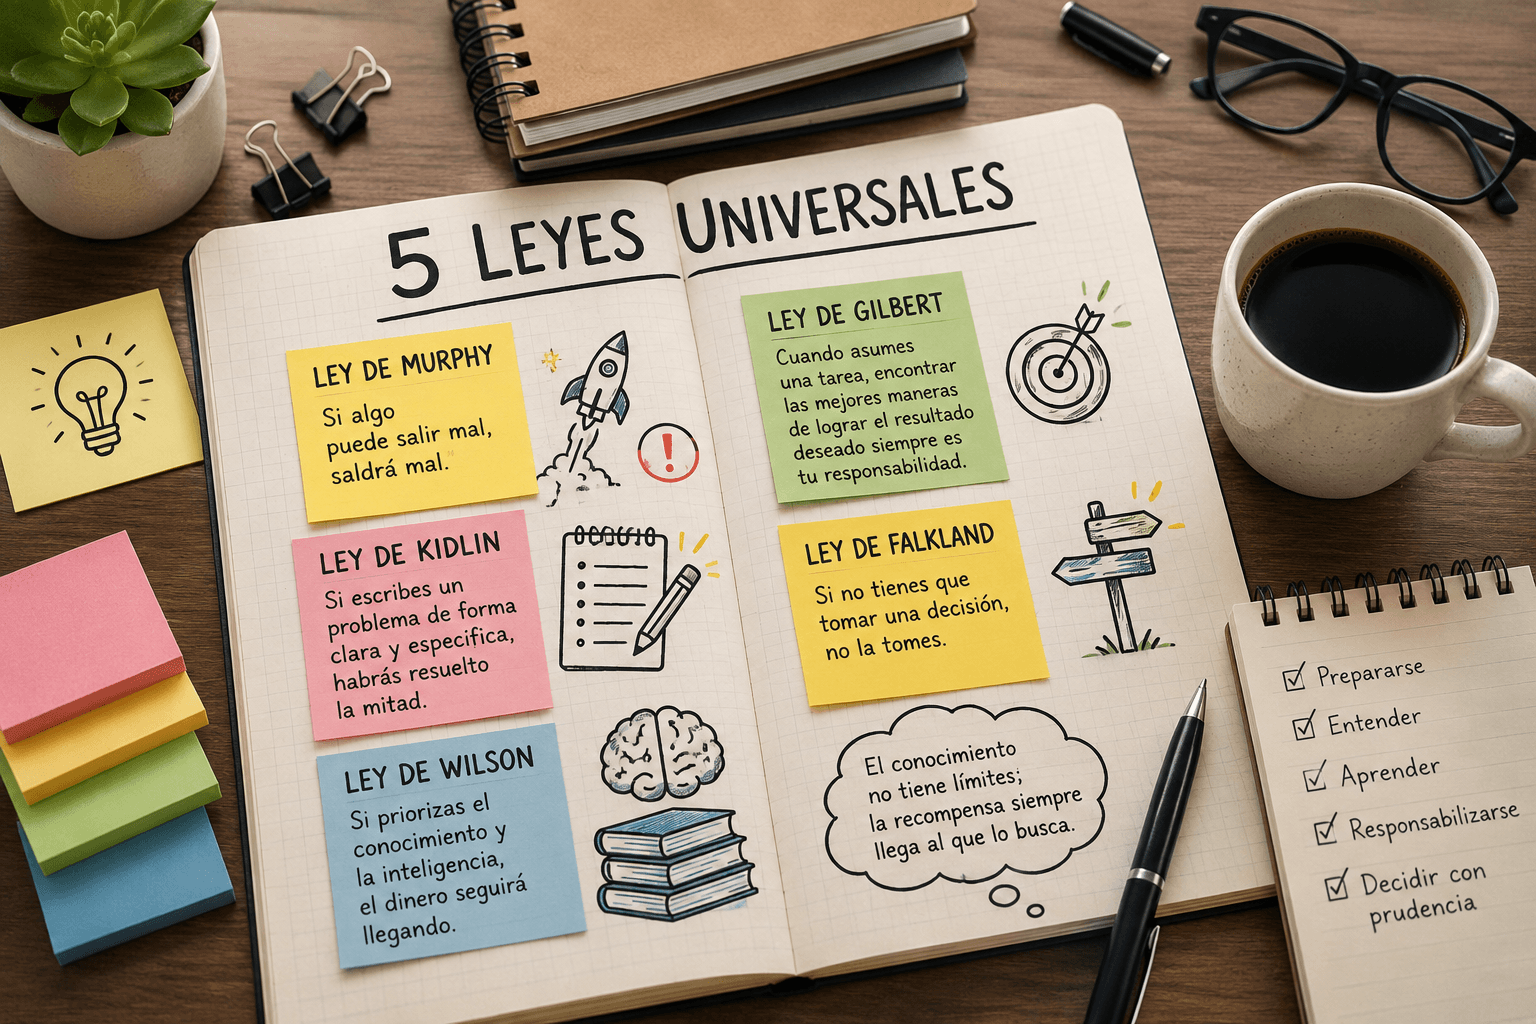 5 LEYES UNIVERSALES
LEY DE MURPHY
Si algo
puede salir mal,
saldrá mal.
LEY DE KIDLIN
Si escribes un
problema de forma
clara y específica,
habrás resuelto
la mitad.
LEY DE WILSON
Si priorizas el
conocimiento y
la inteligencia,
el dinero seguirá
llegando.
LEY DE GILBERT
Cuando asumes
una tarea, encontrar
las mejores maneras
de lograr el resultado
deseado siempre es
tu responsabilidad.
LEY DE FALKLAND
Si no tienes que
tomar una decisión,
no la tomes.
El conocimiento
no tiene límites;
la recompensa siempre
llega al que lo busca.
Prepararse
Entender
Aprender
Responsabilizarse
Decidir con
prudencia